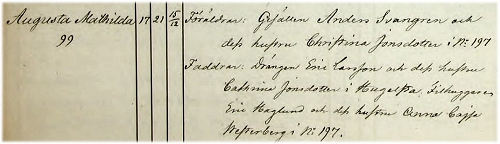 Augusta Mathilda 17 21 15/12 Föräldrar: Gesällen Anders Svangren och
99 dess hustru Christina Jonsdotter i No 197
Faddrar: Drängen Eric Larsson och dess hustru
Cathrina Jonsdotter i Hugelsta, Filhuggaren
Eric Haglund och dess hustru Anna Cajsa
Westerberg i No 197.